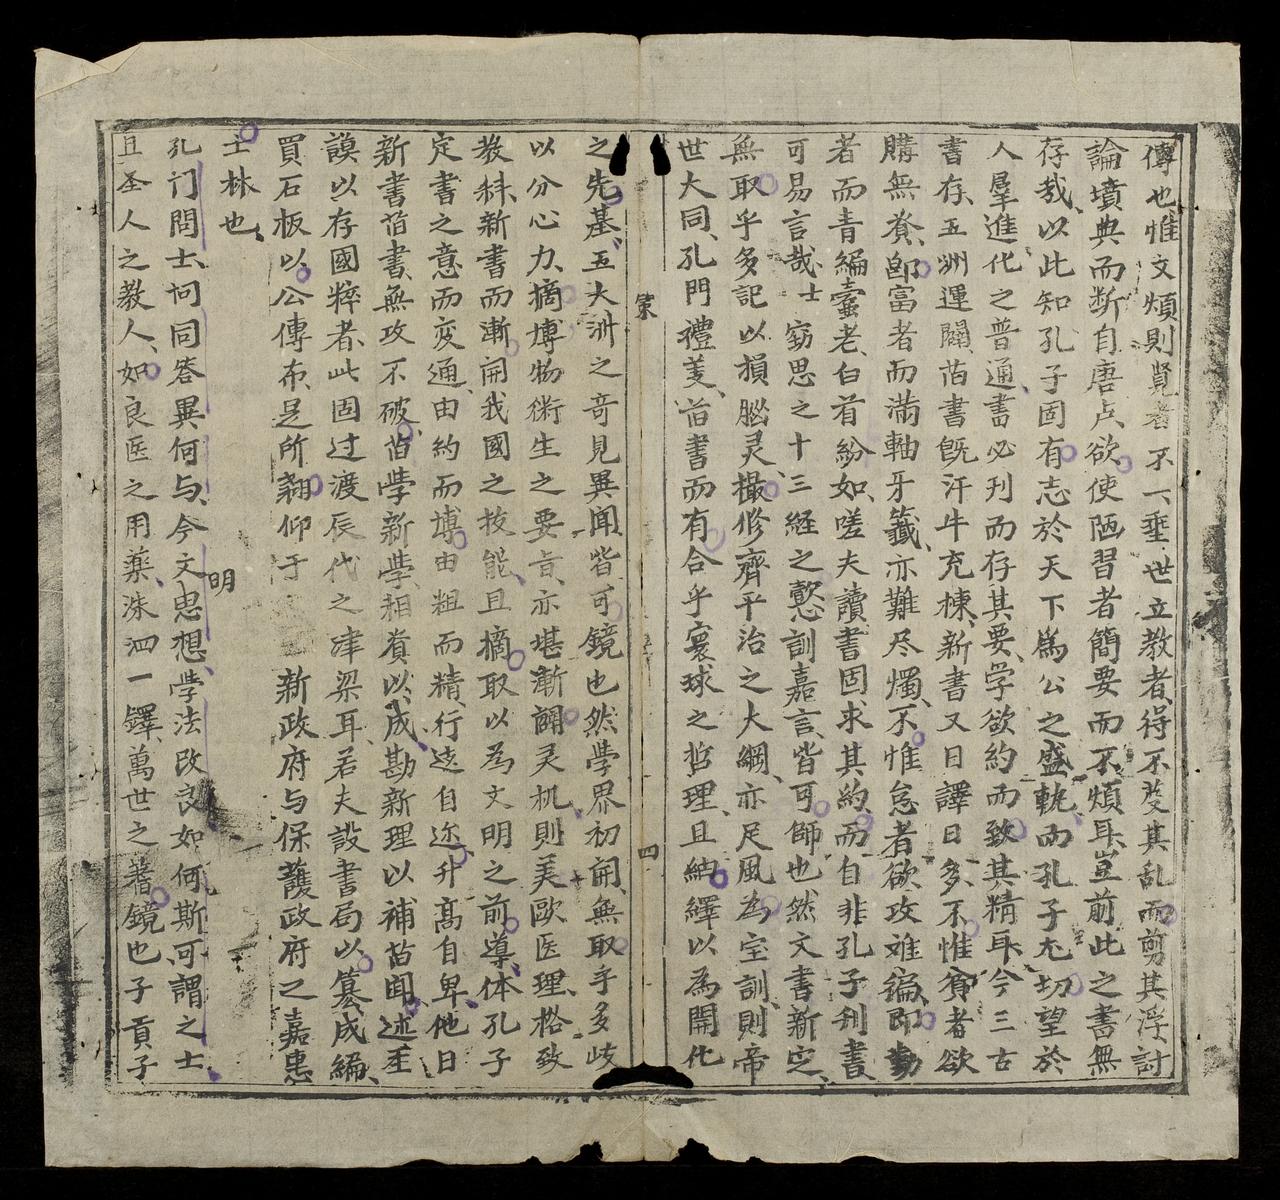 傳也惟文煩則覽者不一、垂世立教者、得不芟其乱而剪其浮、討
論墳典而断自唐虞、欲使陋習者簡要而不煩耳、豈前此之書無
存㦲、以此知孔子固有志於天下為公之盛軌、而孔子尤切望於
人羣進化之普通、書必刊而存其要、学欲約而致其精耳、今三古
書存、五洲運闢、旧書既汗牛充棟、新書又日譯日多、不惟貧者欲
購無資、即富者而満軸牙籤、亦難尽燭、不惟怠者欲攻难徧、即勤
者而青編蠧老、白首紛如、嗟夫讀書固求其約、而自非孔子刊書
可易言哉、士窮思之十三経之懿訓嘉言、皆可師也、然文書新定、
無取乎多記以損脳灵、撮修齊平治之大綱、亦足風為室訓、則帝
世大同、孔門禮羙、旧書而有合乎寰球之哲理、且紬繹以為開化
策
四
之先基、五大洲之奇見異聞皆可鏡也、然学界初開、無取乎多岐
以分心力、摘博物衛生之要旨、亦堪漸闢灵机、則美歐医理、格致
教科、新書而漸開我國之技能、且摘取以為文明之前導、体孔子
定書之意而変通、由約而博、由粗而精、行远自迩、升高自卑、他日
新書旧書、無攻不破、旧學新學、相資以成、勘新理以補旧聞、述圣
謨以存國粹者、此固过渡辰代之津梁耳、若夫設書局以纂成編、
買石板以公傳布、是所翹仰于 新政府与保護政府之嘉惠
士林也、
孔门問士、何同答異何与、今文明思想、学法改良如何斯可謂之士、
且圣人之教人、如良医之用藥、洙泗一鐸、萬世之蓍鏡也、子貢子